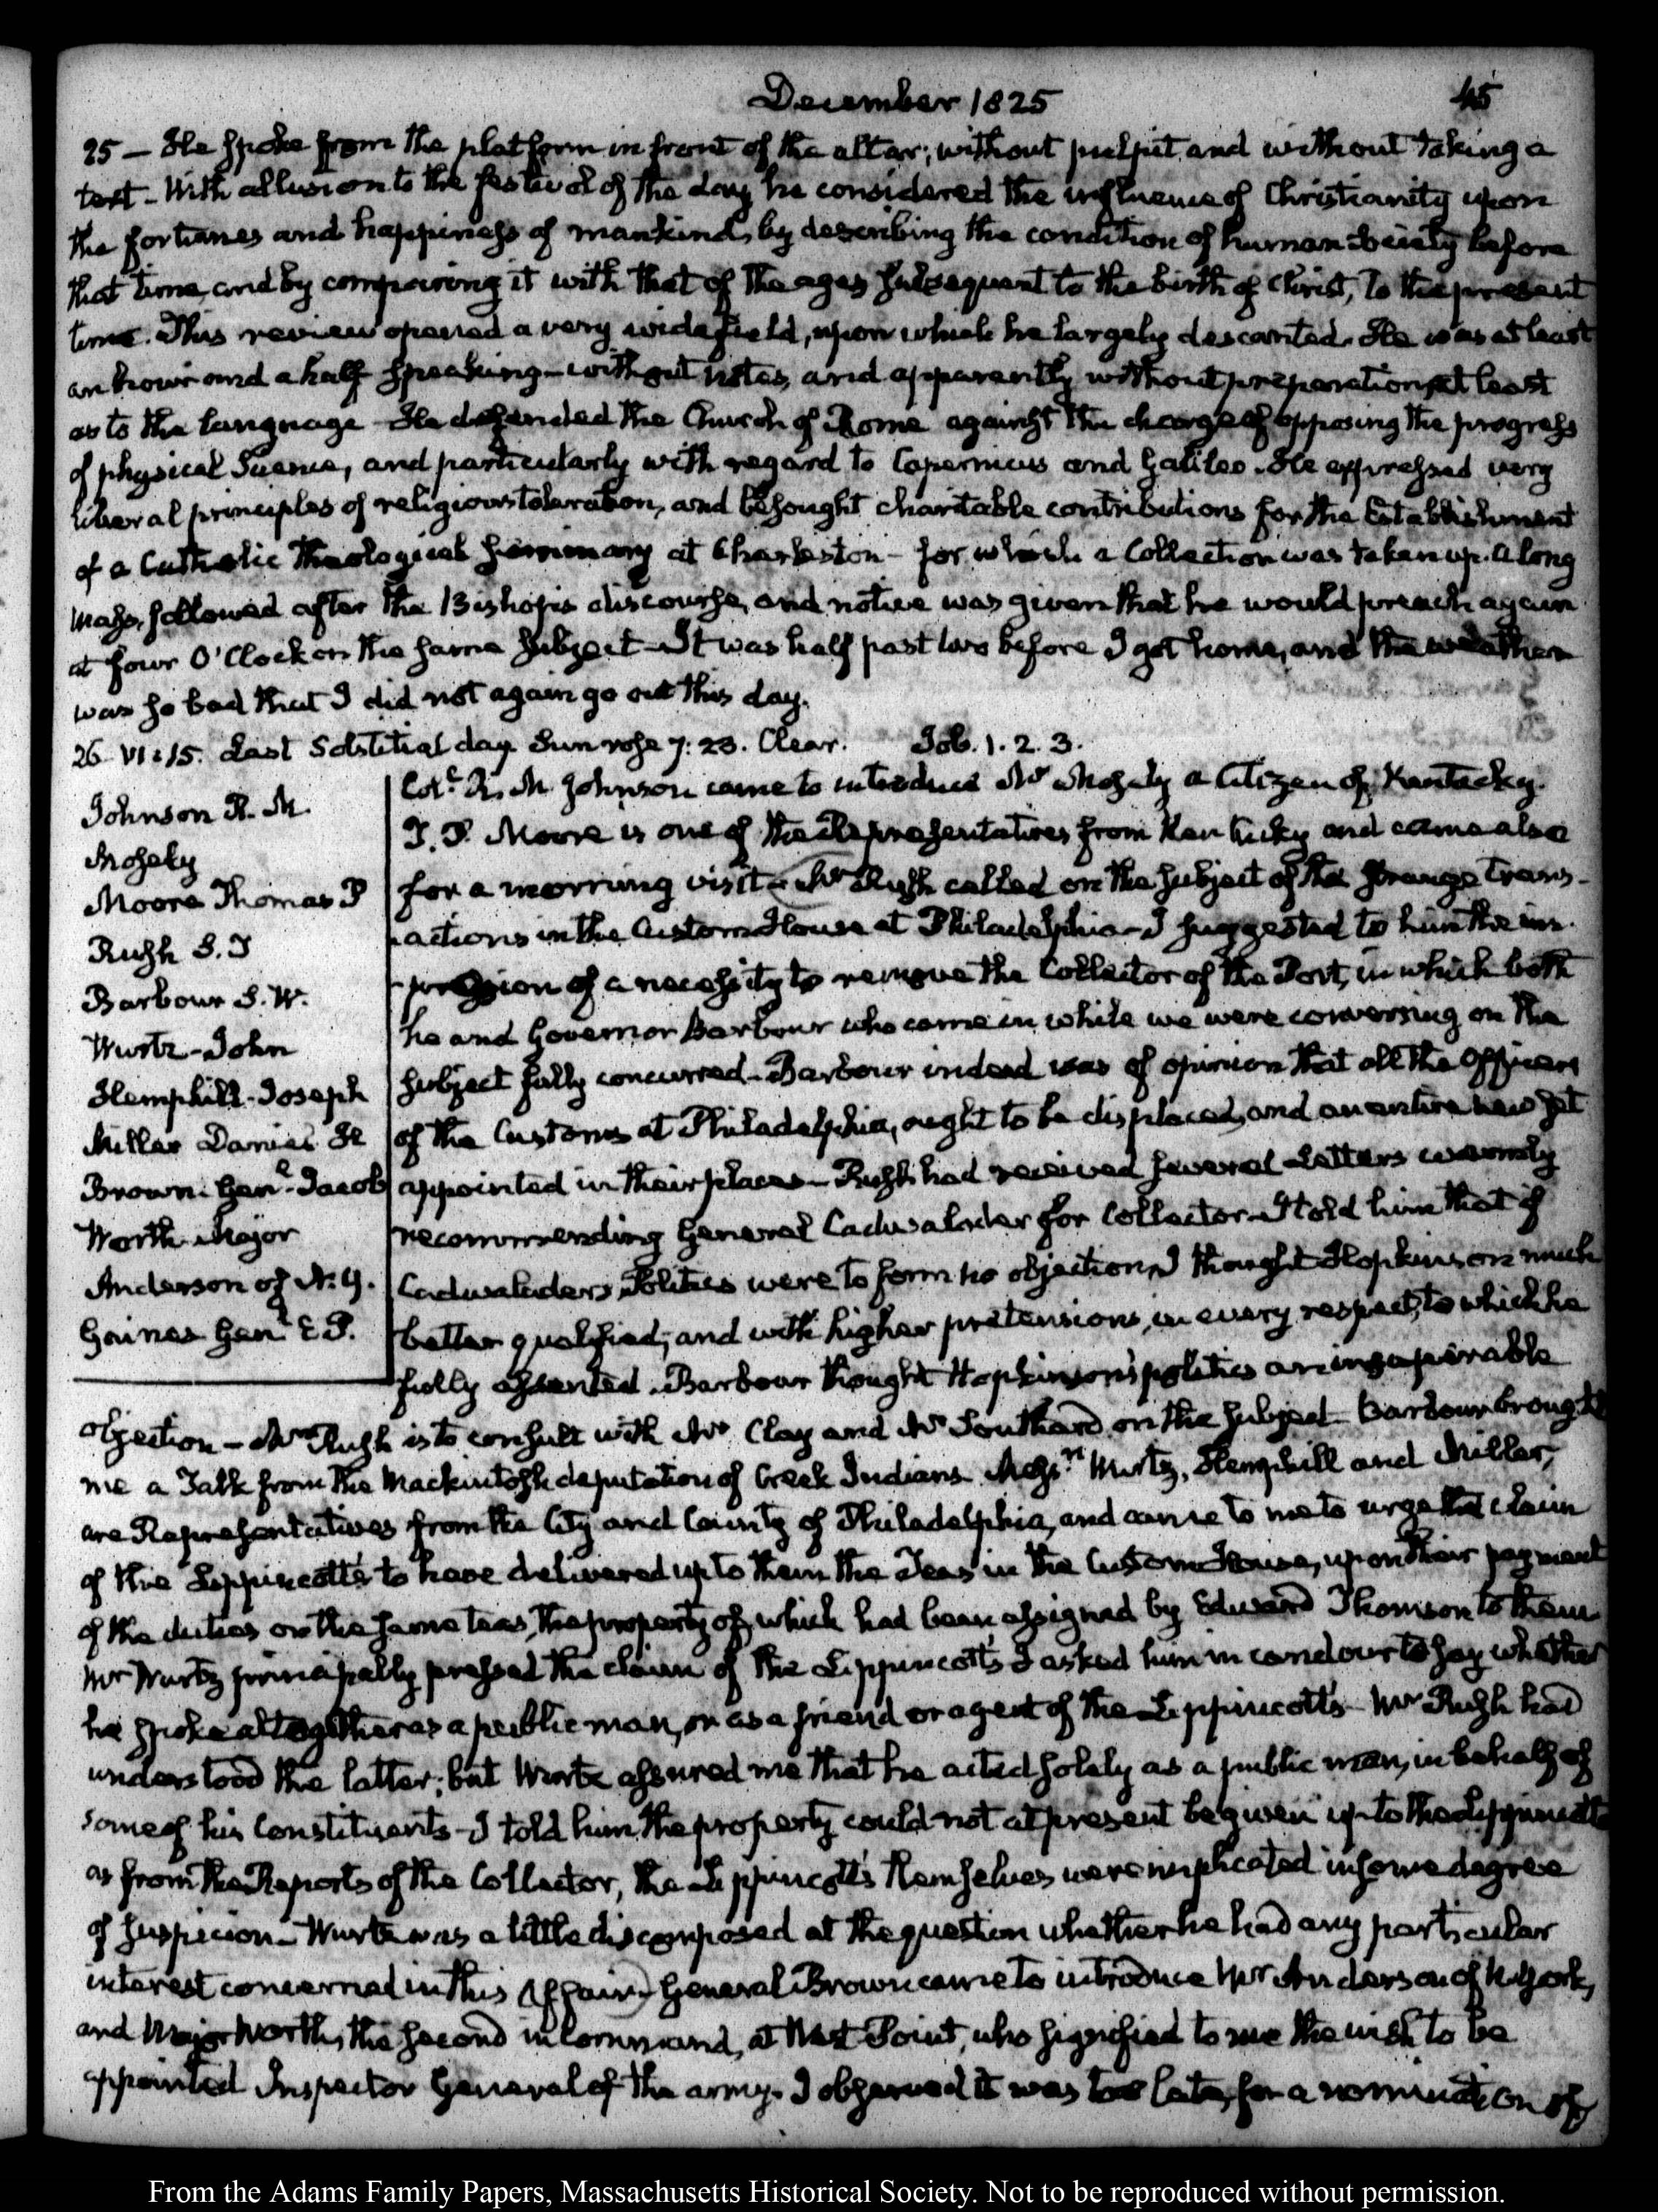 December 1825
45
25 — He spoke from the platform in front of the altar; without pulpit and without taking a
text - With allusion to the festival of the day he considered the influence of Christianity upon
the fortunes and happiness of mankind, by describing the condition of human Society before
that time, and by comparing it with that of the ages subsequent to the birth of Christ, to the present
time. This review opened a very wide field, upon which he largely descanted. He was at least
an hour and a half speaking - without notes, and apparently without preparation, at least
as to the language - He defended the Church of Rome against the charge of opposing the progress
of physical Science, and particularly with regard to Copernicus and Galileo. He expressed very
liberal principles of religious toleration, and besought charitable contributions for the Establishment
of a Catholic Theological Seminary at Charleston - for which a Collection was taken up. A long
Mass, followed after the Bishop's discourse, and notice was given that he would preach again
at four O'Clock on the same subject - It was half past two before I got home, and the weather
was so bad that I did not again go out this day.
26. VI:15. Last Solstitial day. Sun rose 7:23. Clear. Job. 1. 2. 3.
Johnson R. M.
Mosely
Moore Thomas P
Rush S. T
Barbour S. W.
Wurtz - John
Hemphill - Joseph
Miller Daniel H
Brown. Genl. Jacob
Worth Major
Anderson of N. Y.
Gaines Genl E P.
Coll. R. M Johnson came to introduce Mr Mosely a Citizen of Kentucky.
T. P. Moore is one of the Representatives from Kentucky and came also
for a morning visit - Mr Rush called on the subject of the strange trans-
actions in the Custom House at Philadelphia - I suggested to him the im-
pression of a necessity to remove the Collector of the Port, in which both
he and Governor Barbour who came in while we were conversing on the
subject fully concurred - Barbour indeed was of opinion that all the Officers
of the Customs at Philadelphia, ought to be displaced, and an entire new set
appointed in their places - Rush had received several Letters warmly
recommending General Cadwalader for Collector - I told him that if
Cadwaladers Politics were to form no objection, I thought Hopkinson much
better qualified; and with higher pretensions, in every respect, to which he
fully assented. Barbour thought Hopkinson's politics an insuperable
objection - Mr Rush is to consult with Mr Clay and Mr Southard on the subject - Barbour brought
me a Talk from the Mackintosh deputation of Creek Indians. Messrs Wurtz, Hemphill and Miller,
are Representatives from the City and County of Philadelphia, and came to me to urge the claim
of the Lippincotts to have delivered up to them the Teas in the Custom House, upon their payment
of the duties on the same teas, the property of which had been assigned by Edward Thomson to them
Mr Wurtz principally pressed the claim of the Lippincotts I asked him in candour to say whether
he spoke altogether as a public man, or as a friend or agent of the Lippincotts - Mr Rush had
understood the latter; but Wurtz assured me that he acted solely as a public man, in behalf of
some of his Constituents - I told him the property could not at present be given up to the Lippincotts
as from the Reports of the Collector, the Lippincotts themselves were implicated in some degree
of suspicion - Wurtz was a little discomposed at the question whether he had any particular
interest concerned in this Affair) General Brown came to introduce Mr Anderson of N. York,
and Major Worth, the second in Command, at West Point, who signified to me the wish to be
appointed Inspector General of the army. I observed it was too late, for a nomination of
From the Adams Family Papers, Massachusetts Historical Society. Not to be reproduced without permission.